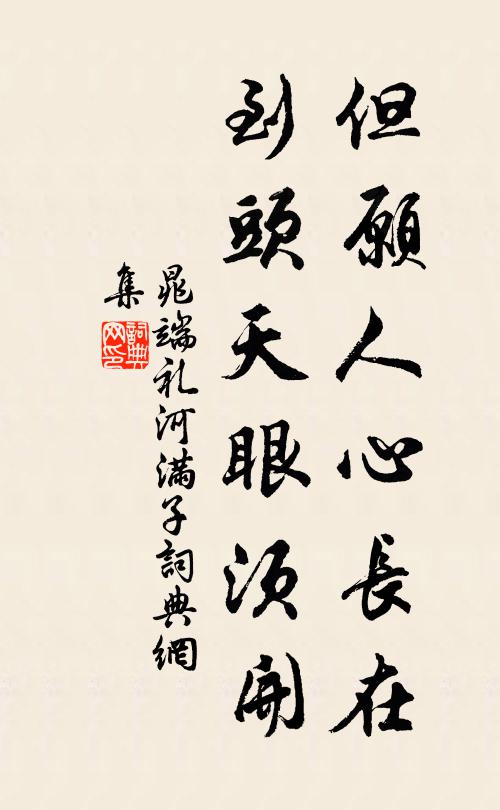 但願人心長在
到頭天眼須開
晁端礼河滿子詞典網
集
詞典
网印